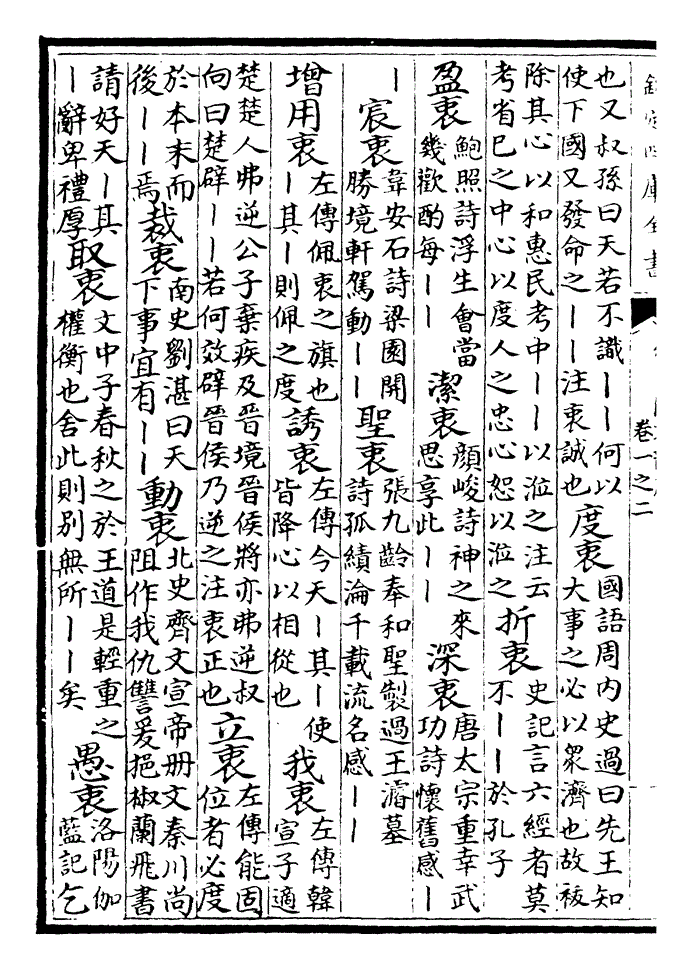 欽定四庫全書
卷一之二
也又叔孫曰天若不識丨丨何以
使下國又發命之丨丨注衷誠也
度衷
國語周内史過曰先王知
大事之必以衆濟也故袚
除其心以和惠民考中丨丨以涖之注云
考省已之中心以度人之忠心恕以涖之
折衷
史記言六經者莫
不丨丨於孔子
盈衷
鮑照詩浮生會當
幾歡酌每丨丨
潔衷
顔峻詩神之來
思享此丨丨
深衷
唐太宗重幸武
功詩懷舊感丨
丨
宸衷
韋安石詩梁園開
勝境軒駕動丨丨
聖衷
張九齡奉和聖製過王濬墓
詩孤績淪千載流名感丨丨
增用衷
左傳佩衷之旗也
丨其丨則佩之度
誘衷
左傳今天丨其丨使
皆降心以相從也
我衷
左傳韓
宣子適
楚楚人弗逆公子棄疾及晉境晉侯將亦弗逆叔
向曰楚辟丨丨若何效辟晉侯乃逆之注衷正也
立衷
左傳能固
位者必度
於本末而
後丨丨焉
裁衷
南史劉湛曰天
下事宜有丨丨
動衷
北史齊文宣帝册文秦川尚
阻作我仇讐爰挹椒蘭飛書
請好天丨其
丨辭卑禮厚
取衷
文中子春秋之於王道是輕重之
權衡也舍此則别無所丨丨矣
愚衷
洛陽伽
藍記乞